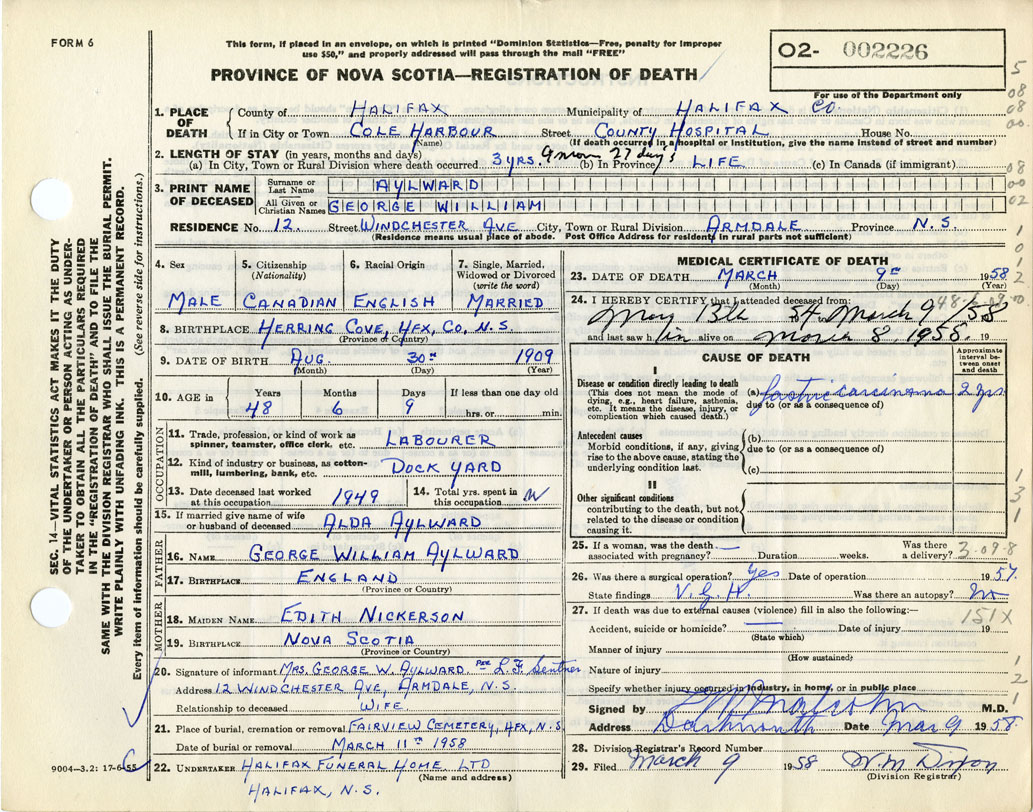 FORM 6
This form, if placed in an envelope, on which is printed "Dominion Statistics—Free, penalty for improper
use $50," and properly addressed will pass through the mail "FREE"
02- 002226
For use of the Department only
PROVINCE OF NOVA SCOTIA—REGISTRATION OF DEATH
1. PLACE OF DEATH
County of HALIFAX Municipality of HALIFAX CO.
If in City or Town COLE HARBOUR Street COUNTY HOSPITAL House No.
(Name) (If death occurred in a hospital or institution, give the name instead of street and number)
2. LENGTH OF STAY (in years, months and days)
(a) In City, Town or Rural Division where death occurred 3 YRS. 9 mos 27 days (b) In Province LIFE (c) In Canada (if immigrant)
3. PRINT NAME OF DECEASED
Surname or Last Name AYLWARD
All Given or Christian Names GEORGE WILLIAM
RESIDENCE No. 12. Street WINDCHESTER AVE City, Town or Rural Division ARMDALE Province N.S.
(Residence means usual place of abode. Post Office Address for residents in rural parts not sufficient)
4. Sex
MALE
5. Citizenship
(Nationality)
CANADIAN
6. Racial Origin
ENGLISH
7. Single, Married,
Widowed or Divorced
(write the word)
MARRIED
8. BIRTHPLACE HERRING COVE, HFX, CO, N.S.
(Province or Country)
9. DATE OF BIRTH AUG. 30TH 1909
(Month) (Day) (Year)
10. AGE in
Years Months Days If less than one day old
48 6 9 hrs. or min.
OCCUPATION
11. Trade, profession, or kind of work as
spinner, teamster, office clerk, etc. LABOURER
12. Kind of industry or business, as cotton-
mill, lumbering, bank, etc. DOCK YARD
13. Date deceased last worked
at this occupation 1949
14. Total yrs. spent in
this occupation
15. If married give name of wife
or husband of deceased ALDA AYLWARD
FATHER
16. NAME GEORGE WILLIAM AYLWARD
17. BIRTHPLACE ENGLAND
(Province or Country)
MOTHER
18. MAIDEN NAME EDITH NICKERSON
19. BIRTHPLACE NOVA SCOTIA
(Province or Country)
20. Signature of informant MRS. GEORGE W. AYLWARD. per L.F. Sentner
Address 12 WINDCHESTER AVE, ARMDALE, N.S.
Relationship to deceased WIFE.
21. Place of burial, cremation or removal FAIRVIEW CEMETERY, HFX, N.S.
Date of burial or removal MARCH 11TH 1958
22. UNDERTAKER HALIFAX FUNERAL HOME LTD
(Name and address)
HALIFAX, N.S.
9004—3.2: 17-6-55
MEDICAL CERTIFICATE OF DEATH
23. DATE OF DEATH MARCH 9TH 1958
(Month) (Day) (Year)
24. I HEREBY CERTIFY that I attended deceased from:
May 13th 54 to March 9/58
and last saw h im alive on March 8, 1958. 19
CAUSE OF DEATH
Approximate
interval be-
tween onset
and death
I
Disease or condition directly leading to death
(This does not mean the mode of
dying, e.g., heart failure, asthenia,
etc. It means the disease, injury, or
complication which caused death.)
(a) Gastric carcinoma 2 yrs.
due to (or as a consequence of)
Antecedent causes
Morbid conditions, if any, giving
rise to the above cause, stating the
underlying condition last.
(b)
due to (or as a consequence of)
(c)
II
Other significant conditions
contributing to the death, but not
related to the disease or condition
causing it.
25. If a woman, was the death
associated with pregnancy? Duration weeks. Was there
a delivery? 3-09-8
26. Was there a surgical operation? Yes Date of operation 1957.
State findings V.G.H. Was there an autopsy? No
27. If death was due to external causes (violence) fill in also the following:—
151X
Accident, suicide or homicide? Date of injury 19
(State which)
Manner of injury
(How sustained)
Nature of injury
Specify whether injury occurred in industry, in home, or in public place
Signed by Malcolm M.D.
Address Dartmouth Date Mar 9 1958.
28. Division Registrar's Record Number
29. Filed March 9 1958 W M Dixon
(Division Registrar)
SEC. 14—VITAL STATISTICS ACT MAKES IT THE DUTY
OF THE UNDERTAKER OR PERSON ACTING AS UNDER-
TAKER TO OBTAIN ALL THE PARTICULARS REQUIRED
IN THE "REGISTRATION OF DEATH" AND TO FILE THE
SAME WITH THE DIVISION REGISTRAR WHO SHALL ISSUE THE BURIAL PERMIT.
WRITE PLAINLY WITH UNFADING INK. THIS IS A PERMANENT RECORD.
Every item of information should be carefully supplied. (See reverse side for instructions.)